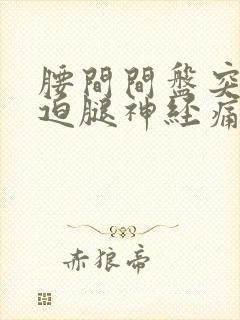 腰間間盤突
迫腿神经痛
赤狼帝